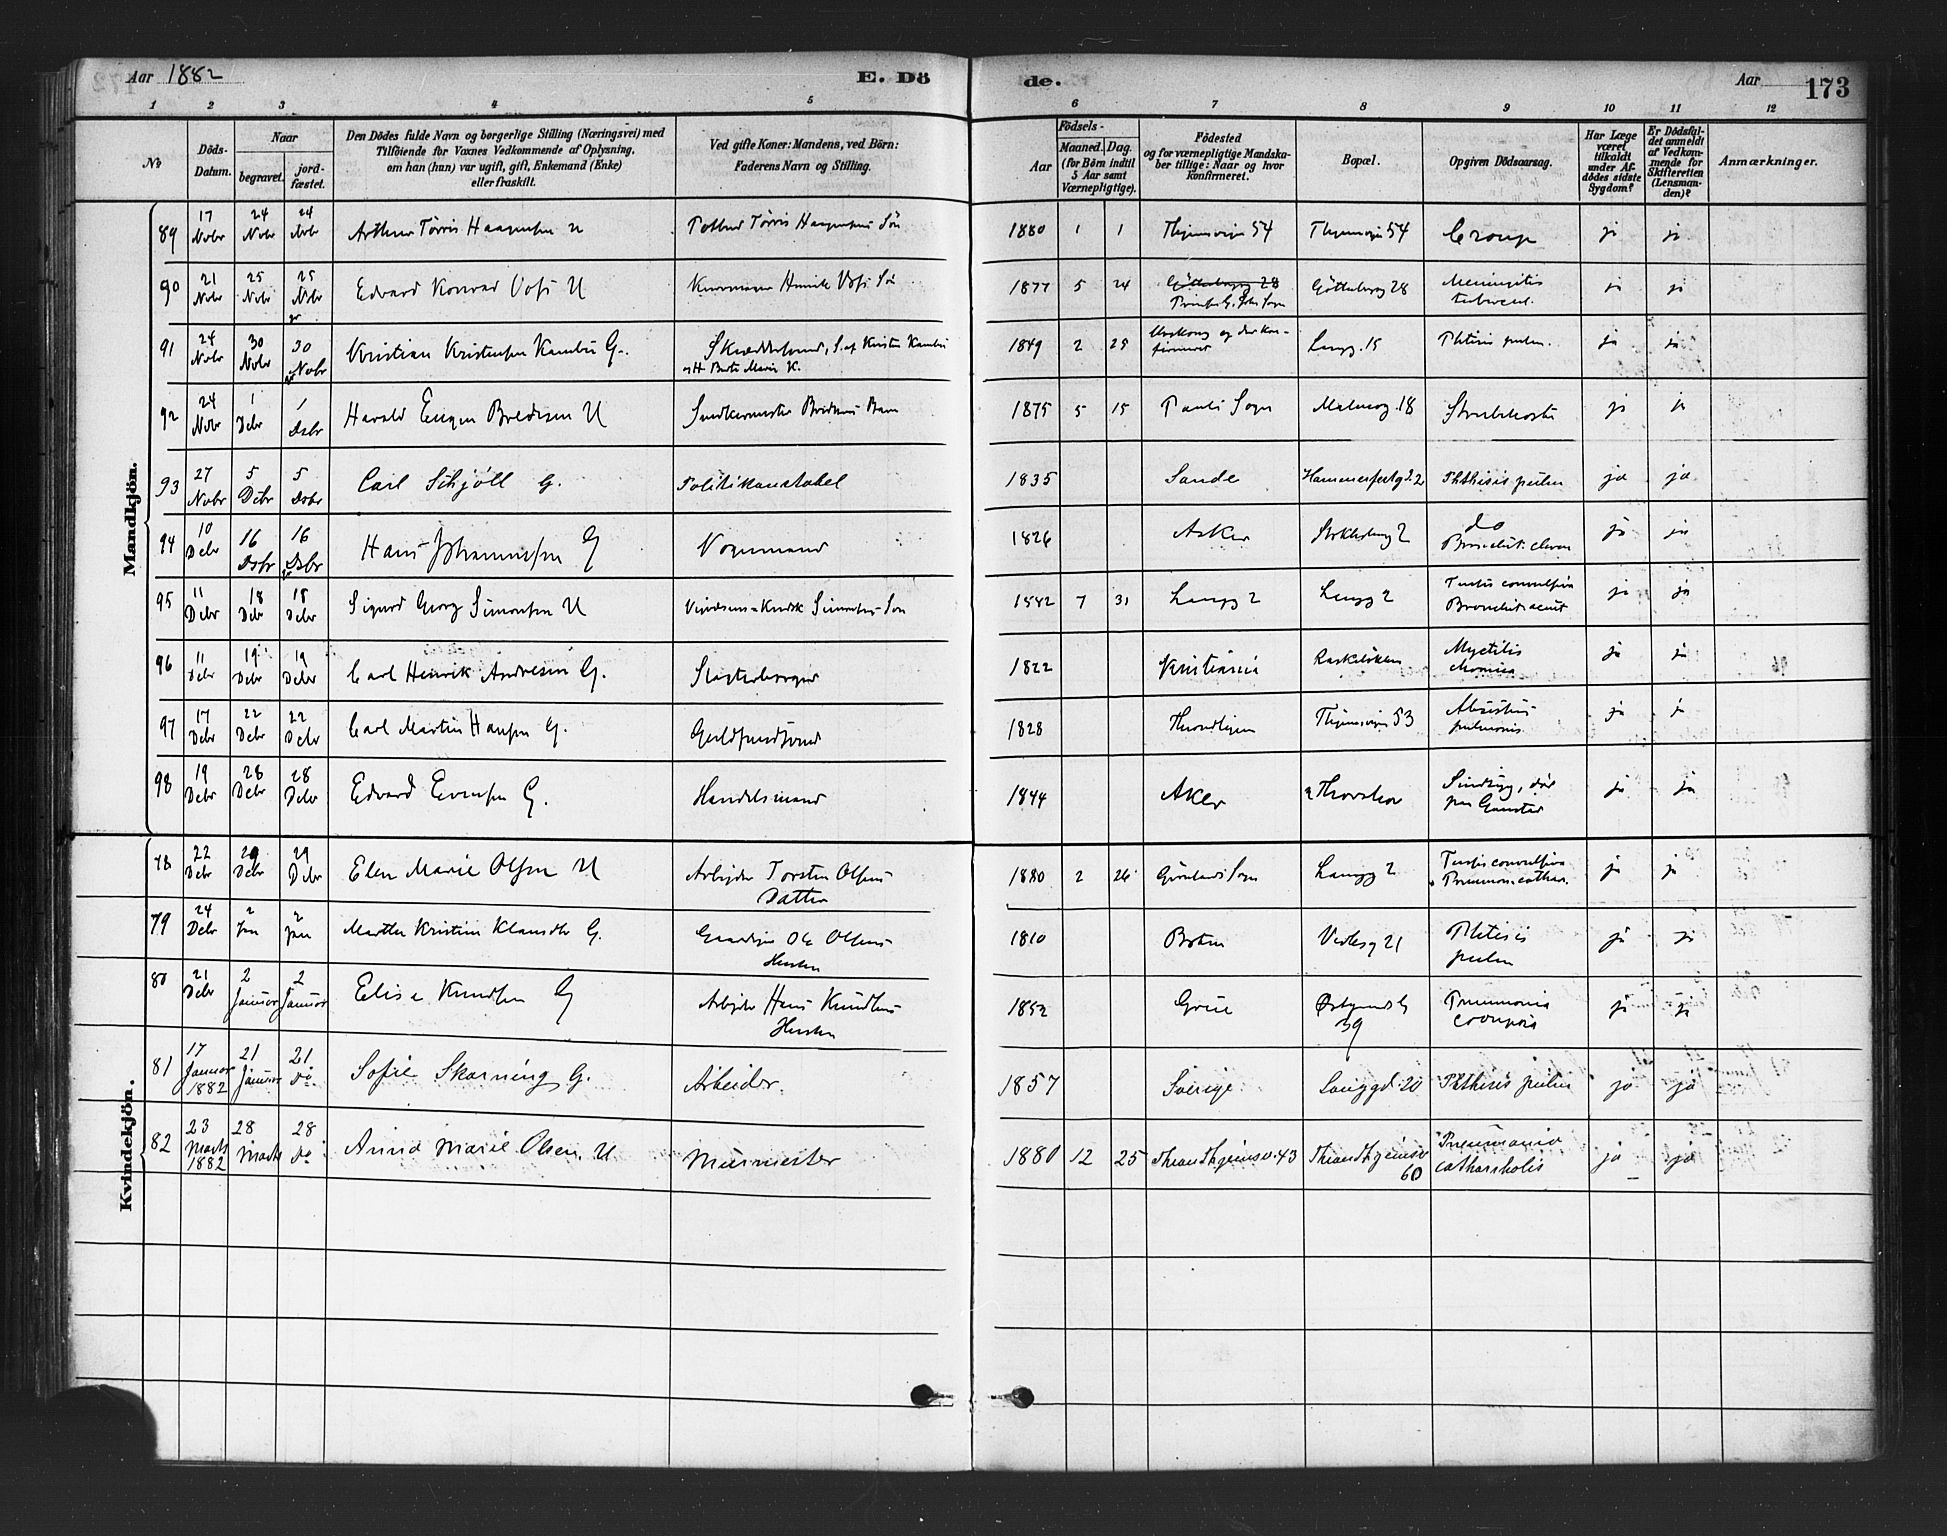 Aar 1882 E. Dö de. Aar 173
1 2 3 4 5 6 7 8 9 10 11 12
No
Döds-Datum.
Naar
begravet.
jord-fæstet.
Den Dödes fulde Navn og borgerlige Stilling (Næringsvei) med
Tilföiende for Voxnes Vedkommende af Oplysning,
om han (hun) var ugift, gift, Enkemand (Enke)
eller fraskilt.
Ved gifte Koner: Mandens, ved Börn:
Faderens Navn og Stilling.
Födsels-
Aar
Maaned. Dag.
(for Börn indtil
5 Aar samt
Værnepligtige).
Födested
og for værnepligtige Mandska-
ber tillige: Naar og hvor
konfirmeret.
Bopæl.
Opgiven Dödsaarsag.
Har Læge
været
tilkaldt
under Af-
dödes sidste
Sygdom?
Er Dödsfal-
det anmeldt
af Vedkom-
mende for
Skifteretten
(Lensman-
den)?
Anmærkninger.
Mandkjön.
89 17 Nobr 24 Nobr 24 Nobr Arthur Törris Haagensen U Törris Haagensens Sön 1880 1 1 Thjemsvejen 54 Thjemsvejen 54 Croup ja ja
90 21 Nobr 25 Nobr 25 Nobr Edvard Konrad Voss U Henrik Voss Sön 1877 5 24 Göttebergg 28 Göttebergg 28 Meningitis tubercul. ja ja
91 24 Nobr 30 Nobr 30 Nobr Kristian Kristensen G. 1849 2 25 og der kon-
firmeret Langg. 15 Phtisis pulm. ja ja
92 24 Nobr 1 Debr 1 Debr Harald Eugen Bredesen U Snedkermester Bredesens Barn 1875 5 15 Pauls Sogn Malmög. 18 Strubehoste ja ja
93 27 Nobr 5 Debr 5 Debr Carl Schjöll G. Politikonstabel 1835 Sande Hammerfestg. 2 Phthisis pulm ja ja
94 10 Debr 16 Debr 16 Debr Hans Johannessen G Vognmand 1826 Asker 2 do
Bronchit. chron ja ja
95 11 Debr 18 Debr 18 Debr Sigurd Georg Simonsen U Simonsens Sön 1882 7 31 Langg 2 Langg 2 Tussis convulsiva
Bronchit. acut ja ja
96 11 Debr 19 Debr 19 Debr Carl Henrik Andresen G. Slagterborger 1822 Kristiania Myelitis
chronica ja ja
97 17 Debr 22 Debr 22 Debr Carl Martin Hansen G. Guldsmedsvend 1828 Throndhjem Thjemsvejen 53 Abscessus
pulmonis ja ja
98 19 Debr 28 Debr 28 Debr Edvard Evensen G. Handelsmand 1844 Aker Thorshov Sindssyg, död
paa Gaustad ja ja
Kvindekjön.
78 22 Debr 29 Debr 29 Debr Elen Marie Olsen U Arbejder Torsten Olsens
Datter 1880 2 26 Grönlands Sogn Langg 2 Tussis convulsiva
Pneumon. cathar. ja ja
79 24 Debr 2 Jan 2 Jan Marthe Kristine Klausdtr G. Ole Olsens
Hustru 1810 Botne 21 Phtisis
pulm ja ja
80 21 Debr 2 Januar 2 Januar Elise Knudsen G Arbejder Hans Knudsens
Hustru 1852 Grue 39 Pneumonia
crouposa ja ja
81 17 Januar 1882 21 Januar 21 do. Sofie Skarning G. Arbeider. 1857 Sverige Langgd. 20 Phthisis pulm ja ja
82 23 Marts 1882 28 Marts 28 do Anna Marie Olsen. U Murmester 1880 12 25 Thrandhjemsv. 43 Thrandhjemsv
60 Pneumonia
catharrhalis ja ja